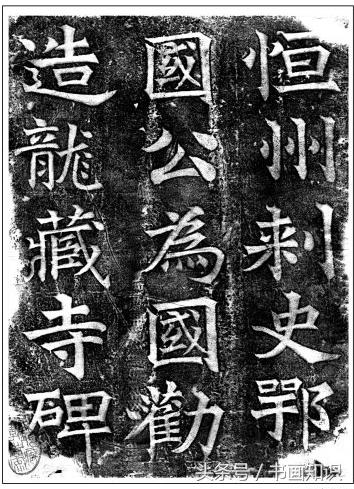 恒州刺史鄂
國公為國勸
造龍藏寺碑
头条号 / 书画知识